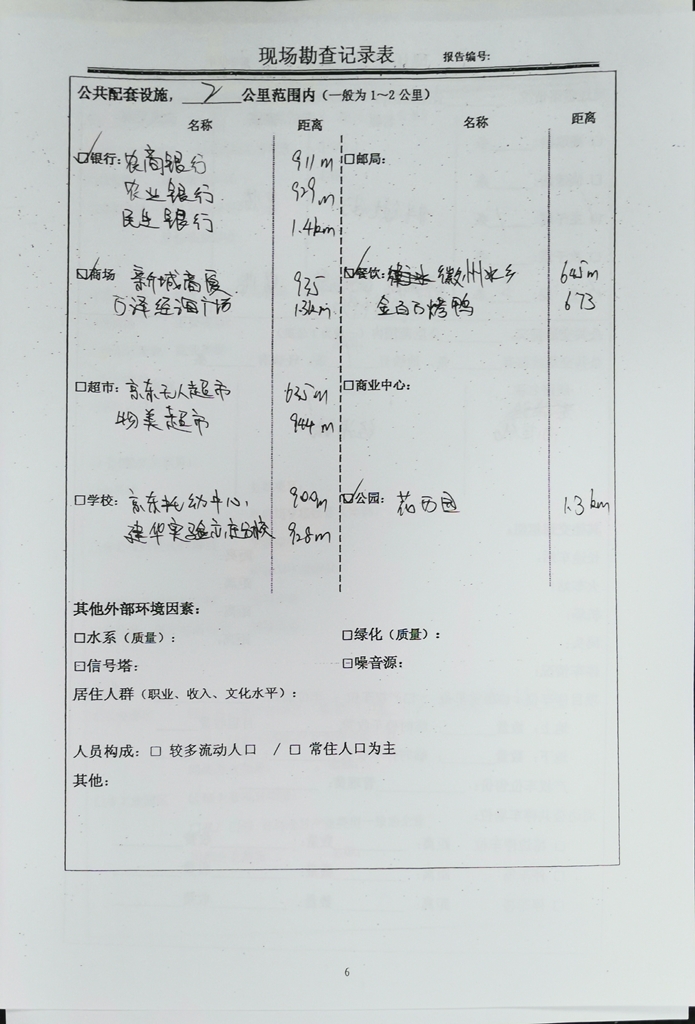 现场勘查记录表 报告编号:
公共配套设施, 2 公里范围内(一般为1~2公里)
名称 距离 名称 距离
☑银行: 农商银行 911m
农业银行 929m
民生银行 1.4km
□邮局:
☑商场 新城商厦 935
1.3km
☑餐饮: 徽州水乡 645m
金百万烤鸭 673
□超市: 京东无人超市 635m
物美超市 944m
□商业中心:
□学校: 京东托幼中心 900m
建华实验 分校 928m
☑公园: 1.3km
其他外部环境因素:
□水系(质量): □绿化(质量):
□信号塔: □噪音源:
居住人群(职业、收入、文化水平):
人员构成: □ 较多流动人口 / □ 常住人口为主
其他:
6